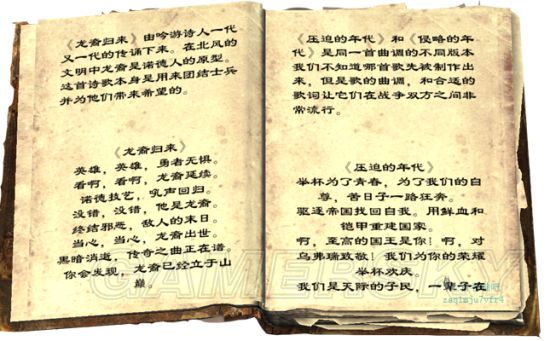 《龙裔归来》由吟游诗人一代
又一代的传诵下来。在北风的
文明中龙裔是诺德人的原型。
这首诗歌本身是用来团结士兵
并为他们带来希望的。
《龙裔归来》
英雄，英雄，勇者无惧。
看啊，看啊，龙裔延续。
诺德技艺，吼声回归。
没错，没错，他是龙裔。
终结邪恶，敌人的末日。
当心，当心，龙裔出世。
黑暗消逝，传奇之曲正在谱。
你会发现，龙裔已经立于山
巅。
《压迫的年代》和《侵略的年
代》是同一首曲调的不同版本
我们不知道哪首歌先被制作出
来，但是歌的曲调，和合适的
歌词让它们在战争双方之间非
常流行。
《压迫的年代》
举杯为了青春，为了我们的自
尊，苦日子一路狂奔。
驱逐帝国找回自我。用鲜血和
铠甲重建国家。
啊，至高的国王是你！啊，对
乌弗瑞致敬！我们为你的荣耀
举杯欢庆。
我们是天际的子民，一辈子在
GAMERSKY
zaq1mju7vfr4